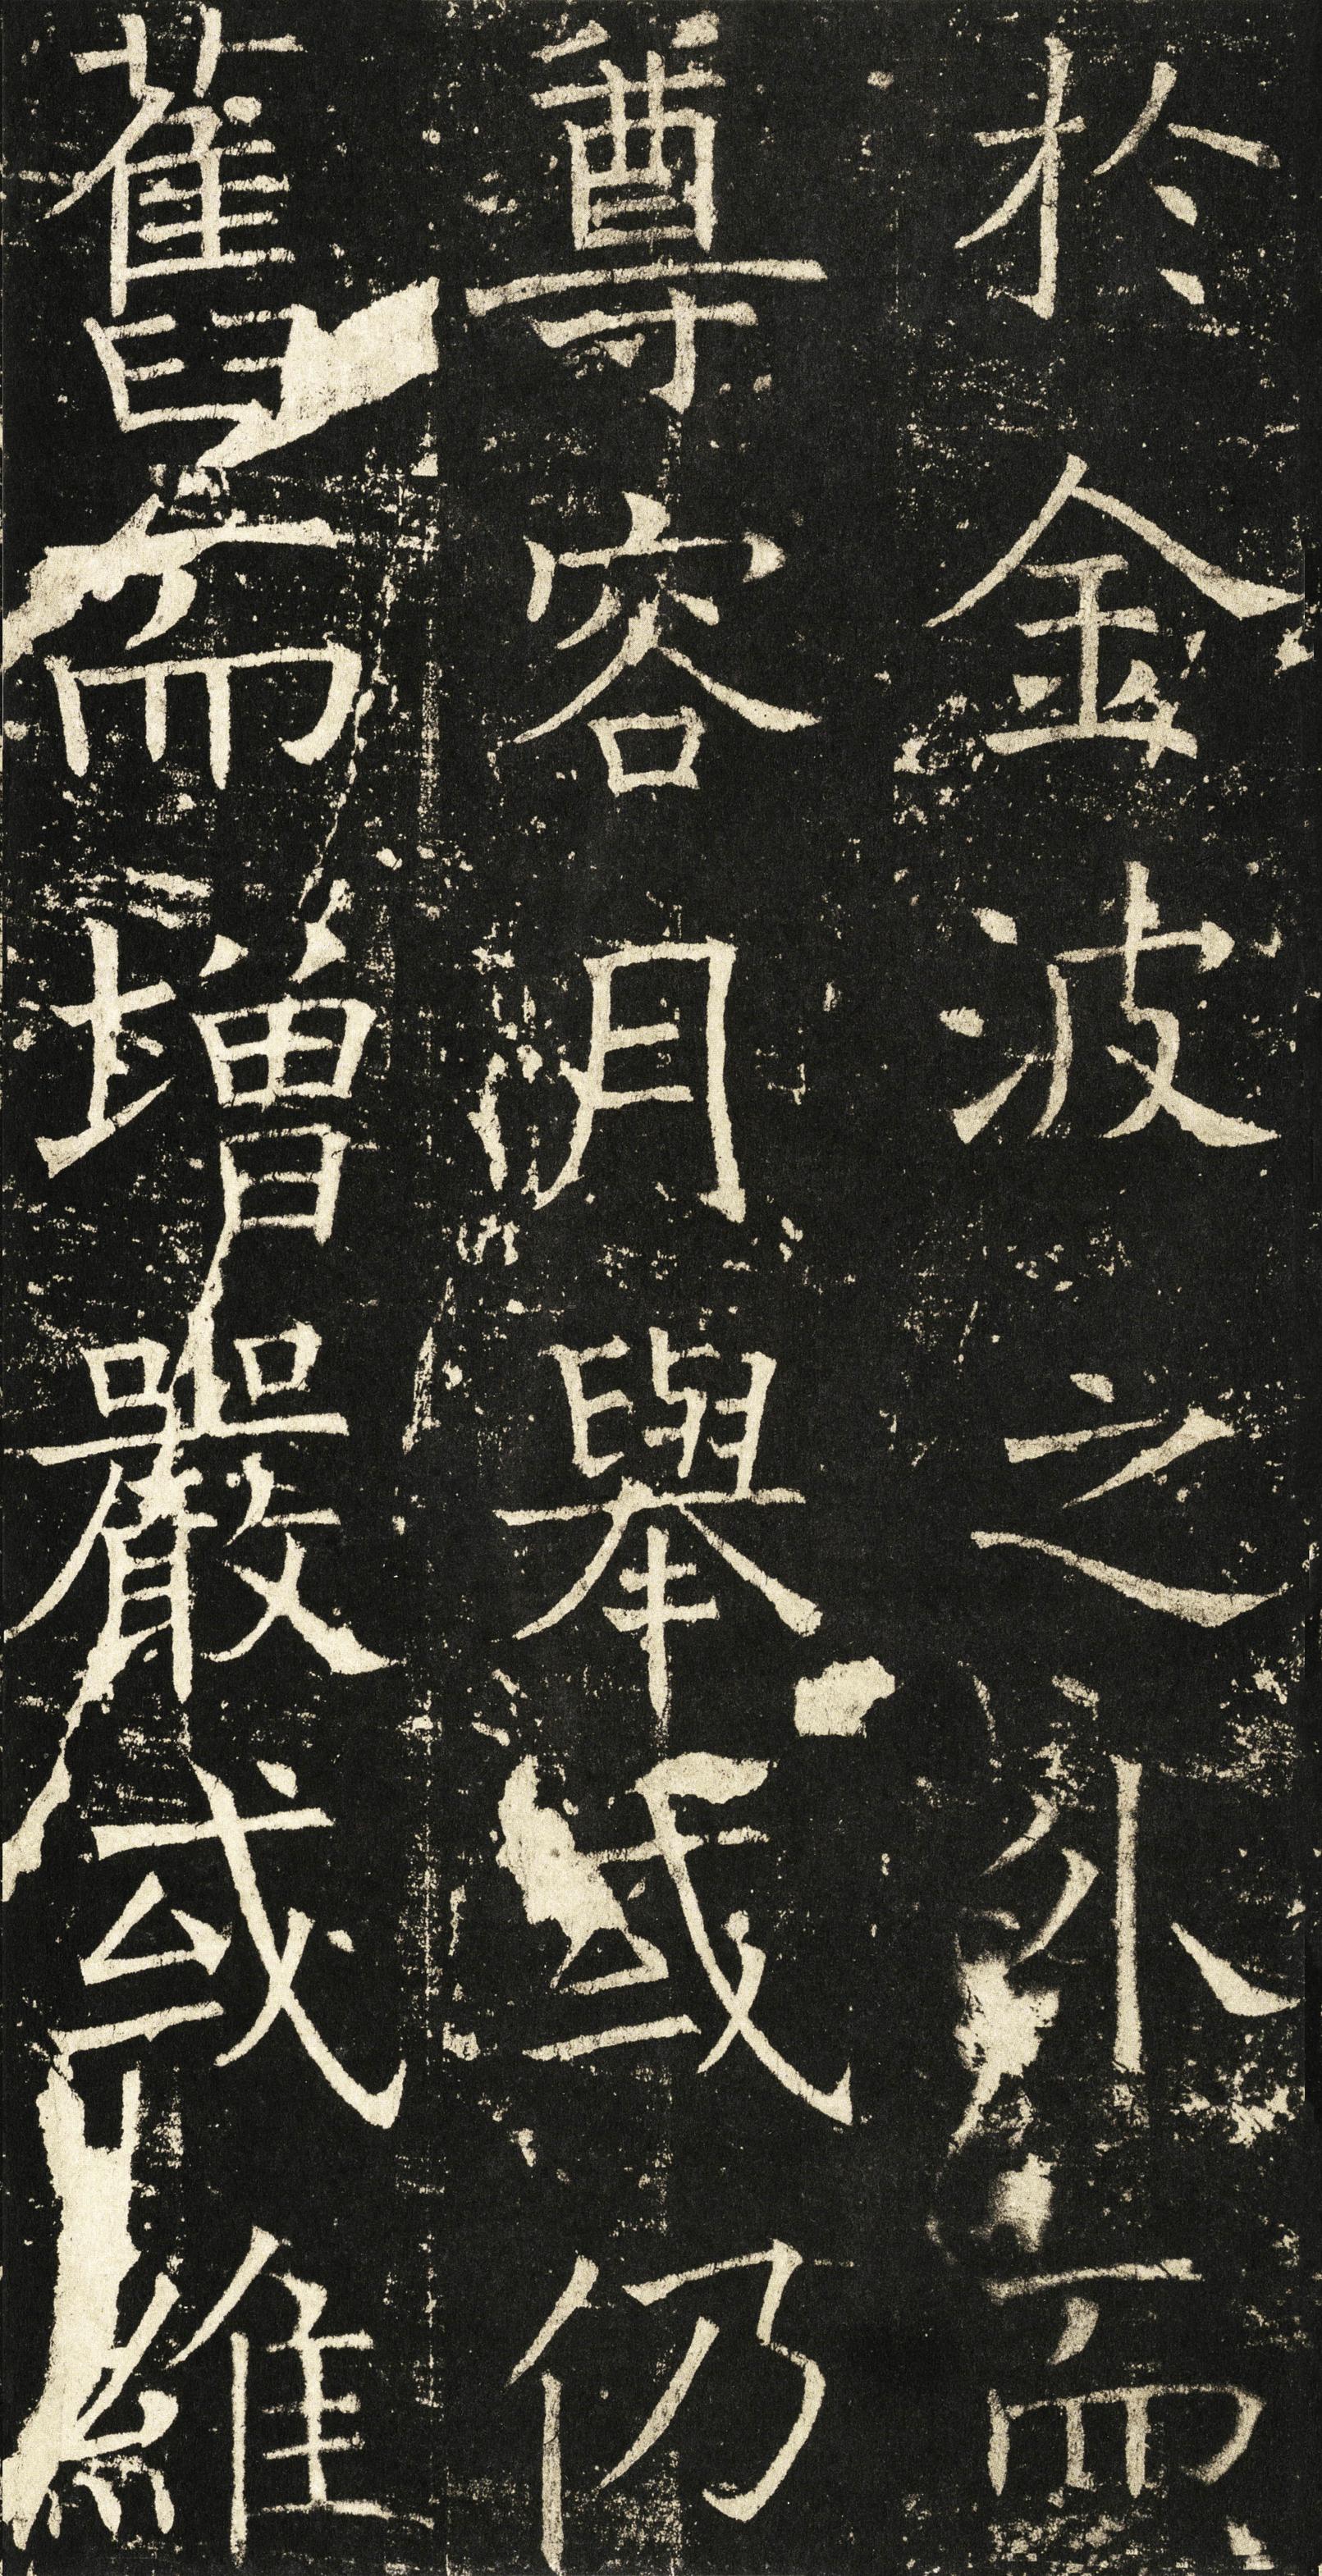 於金波之外而
尊容月舉或仍
舊而增嚴或維